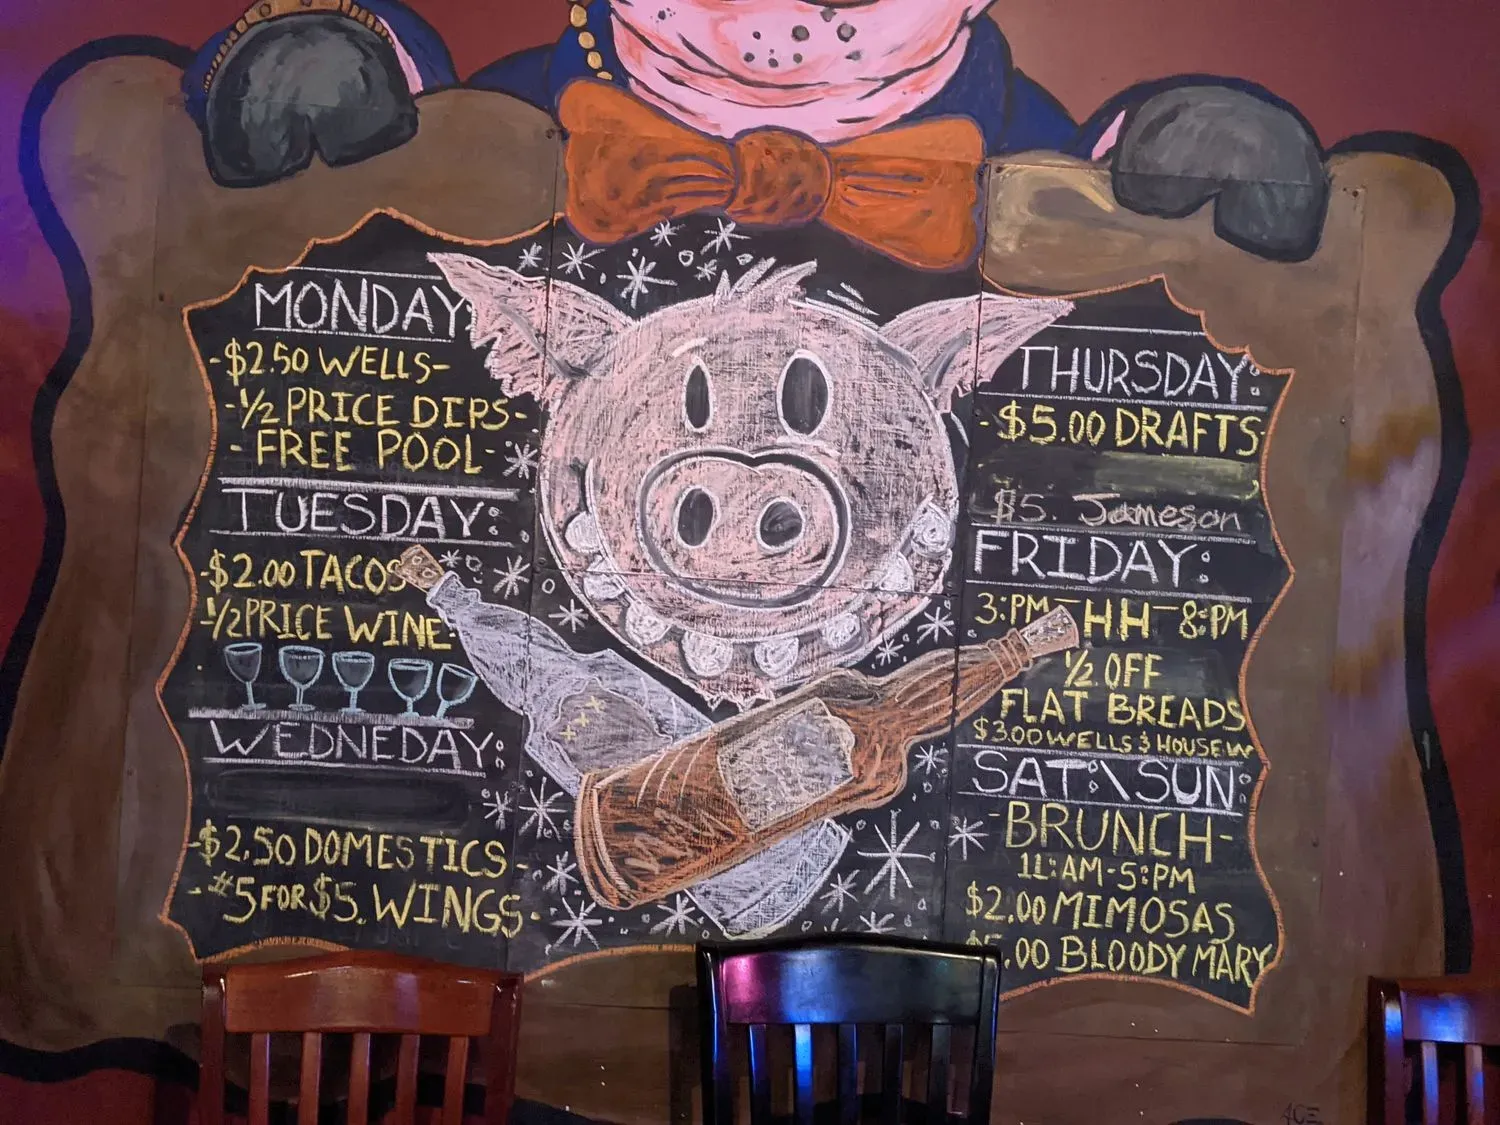 MONDAY:
-$2.50 WELLS-
-1/2 PRICE DIPS-
-FREE POOL-
TUESDAY:
-$2.00 TACOS
1/2 PRICE WINE-
WEDNEDAY:
-$2.50 DOMESTICS-
-#5 FOR $5. WINGS-
THURSDAY:
-$5.00 DRAFTS-
$5. Jameson
FRIDAY:
3:PM-HH-8:PM
1/2 OFF
FLAT BREADS
$3.00 WELLS & HOUSE W
SAT:\SUN:
-BRUNCH-
11:AM-5:PM
$2.00 MIMOSAS
$5.00 BLOODY MARY
ACE